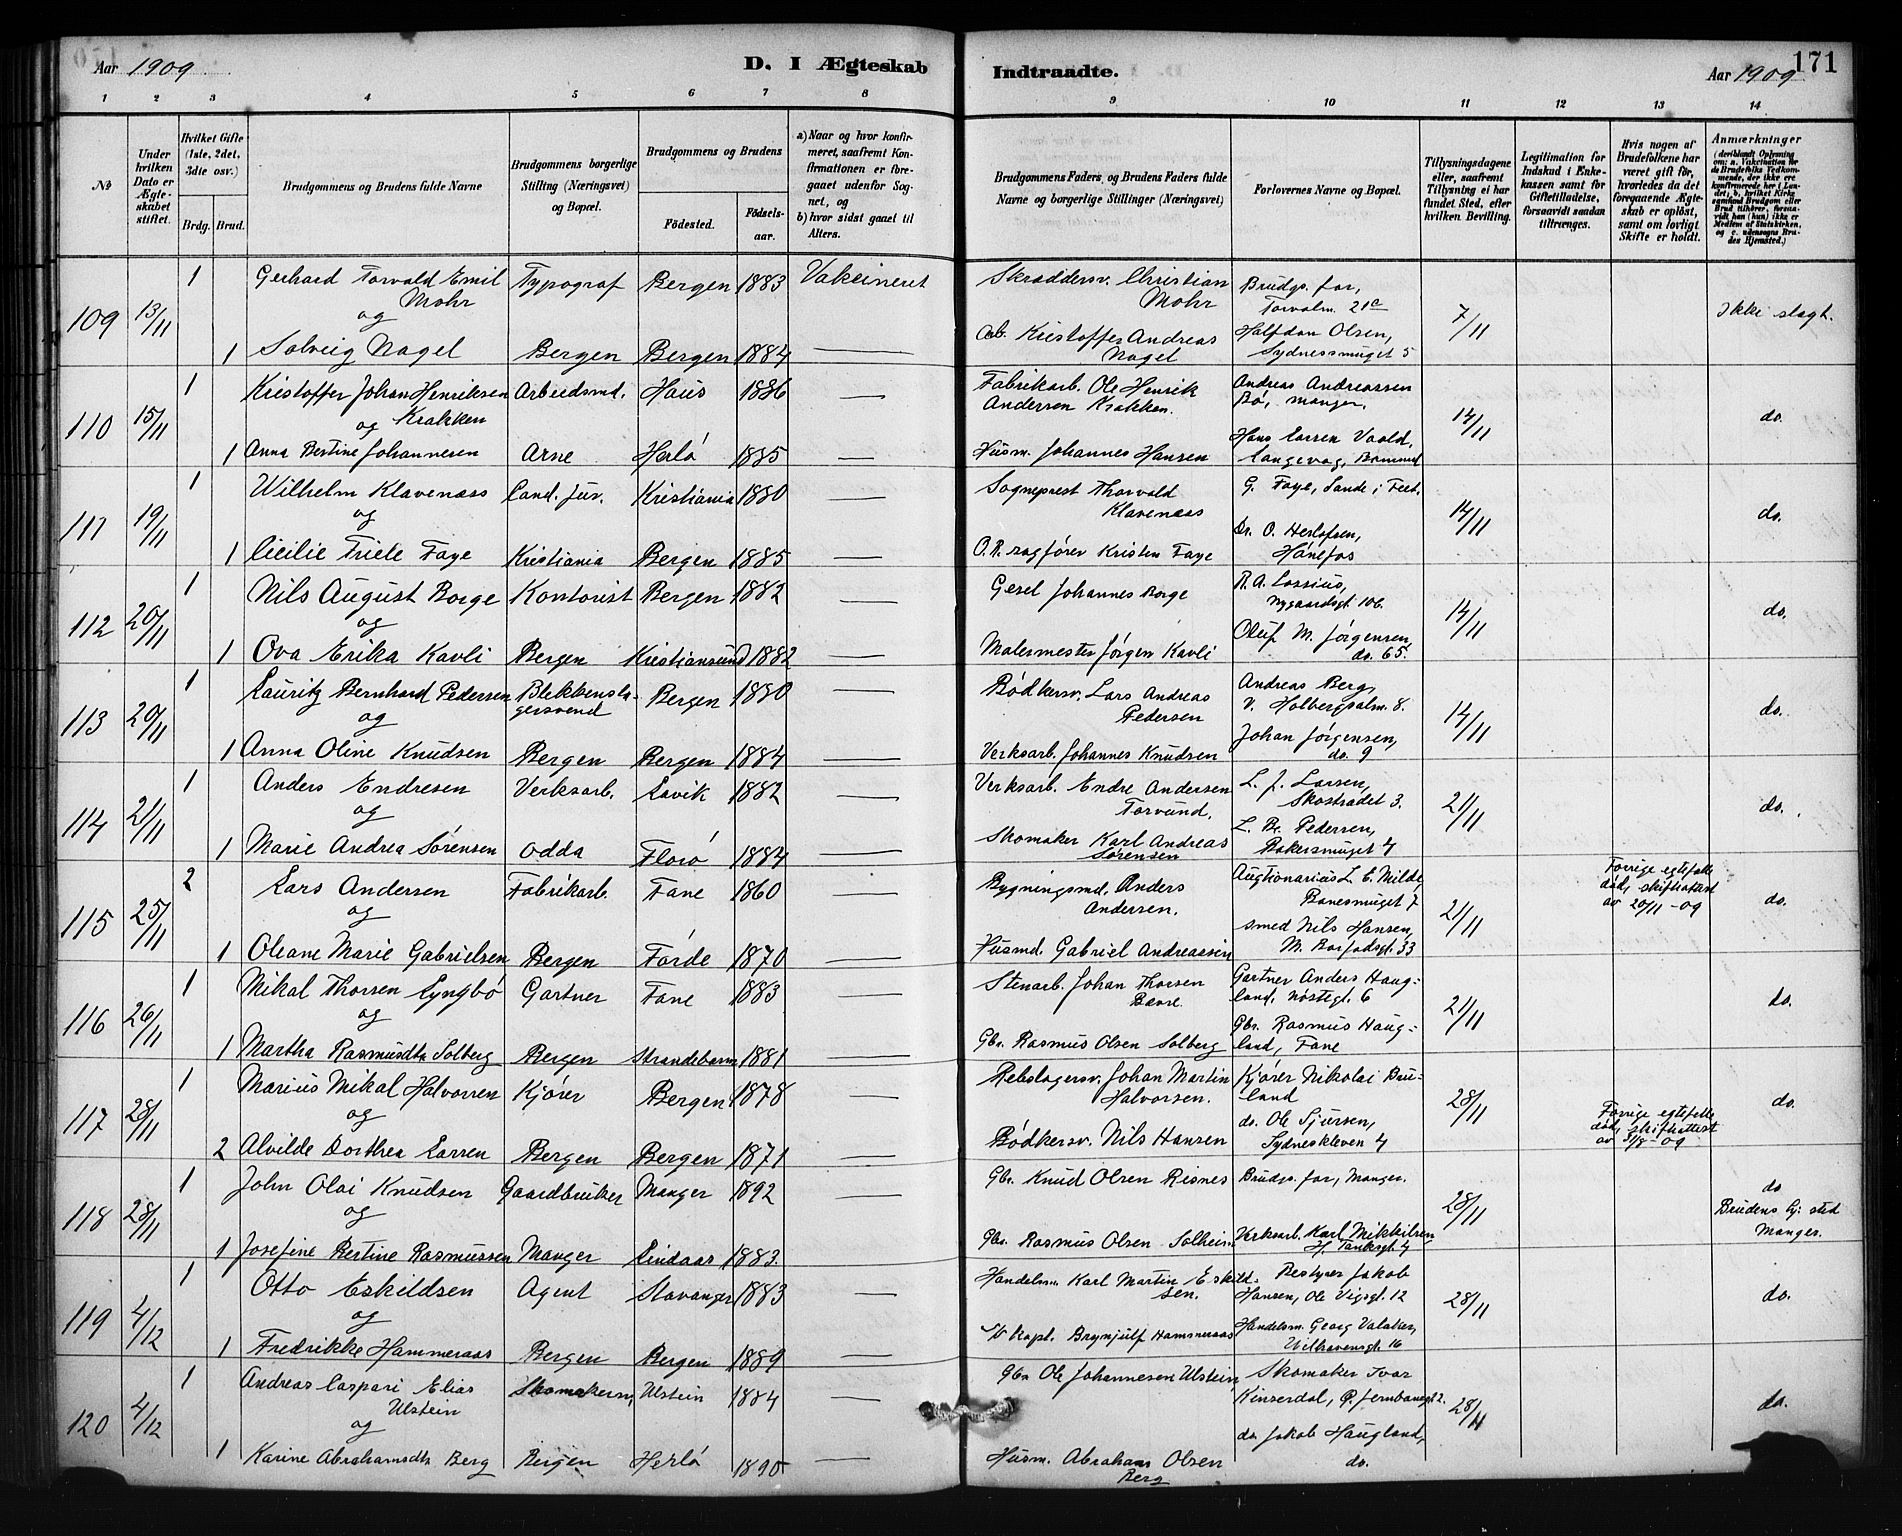 Aar 1909. D. I Ægteskab Indtraadte. Aar 1909. 171
1 2 3 4 5 6 7 8 9 10 11 12 13 14
№
Under hvilken Dato er Ægteskabet stiftet.
Hvilket Gifte (1ste, 2det, 3die osv.)
Brdg. Brud.
Brudgommens og Brudens fulde Navne
Brudgommens borgerlige Stilling (Næringsvei) og Bopæl.
Brudgommens og Brudens
Fødested. Fødselsaar.
a) Naar og hvor konfirmeret, saafremt Konfirmationen er foregaaet udenfor Sognet, og
b) hvor sidst gaaet til Alters.
Brudgommens Faders, og Brudens Faders fulde Navne og borgerlige Stillinger (Næringsvei)
Forlovernes Navne og Bopæl.
Tillysningsdagene eller, saafremt Tillysning ei har fundet Sted, efter hvilken Bevilling.
Legitimation for Indskud i Enkekassen samt for Giftetilladelse, forsaavidt saadan tiltrænges.
Hvis nogen af Brudefolkene har været gift før, hvorledes da det foregaaende Ægteskab er opløst, samt om lovligt Skifte er holdt.
Anmærkninger
(deriblandt Oplysning om: a. Vakcination for de Brudefolks Vedkommende, der ikke ere konfirmerede her i Landet; b. hvilket Kirkesamfund Brudgom eller Brud tilhører, forsaavidt han (hun) ikke er Medlem af Statskirken, og c. udensogns Brudes Hjemsted.)
109 13/11 1 Gerhard Torvald Emil Mohr Typograf Bergen 1883 Vakcineret Skræddersv. Christian Mohr Brudgs. far, Torvalm. 21c 7/11 Ikke slægt.
og
1 Solveig Nagel Bergen Bergen 1884 — Arb. Kristoffer Andreas Nagel Halfdan Olsen, Sydnessmuget 5
110 15/11 1 Kristoffer Johan Henriksen Krakken Arbeidsmd. Haus 1886 — Fabrikarb. Ole Henrik Andersen Krakken. Andreas Andreassen Bø, Manger. 14/11 do.
og
1 Anna Bertine Johannesen Arne Herlø 1885 — Husm. Johannes Hansen Hans Larsen Vaald, Langevåg, Bømmel
111 19/11 1 Wilhelm Klaveness Cand. jur. Kristiania 1880 — Sogneprest Thorvald Klaveness G. Faye, Sande i 14/11 do.
og
1 Cicilie Friele Faye Kristiania Bergen 1885 — O.R. sagfører Kristen Faye Dr. O. Herlofsen, Hønefos
112 20/11 1 Nils August Borge Kontorist Bergen 1882 — Gesel Johannes Borge R. A. Lossius, Nygaardsgt. 106. 14/11 do.
og
1 Ova Erika Kavli Bergen Kristiansund 1882 — Malermester Jørgen Kavli Oluf M. Jørgensen, do. 65.
113 20/11 1 Lauritz Bernhard Pedersen Blekkenslagersvend Bergen 1880 — Bødkersv. Lars Andreas Pedersen Andreas Berg, V. Holbergsalm. 8. 14/11 do.
og
1 Anna Oline Knudsen Bergen Bergen 1884 — Verksarb. Johannes Knudsen Johan Jørgensen, do. 9
114 21/11 1 Anders Endresen Verksarb. Lavik 1882 — Verksarb. Endre Andersen Torvund. L. J. Larsen, Skostrædet 3. 21/11 do.
og
1 Marie Andrea Sørensen Odda Florø 1884 — Skomaker Karl Andreas Sørensen L. Be. Pedersen, Bakersmuget 4
115 25/11 2 Lars Andersen Fabrikarb. Fane 1860 — Bygningsmd. Anders Andersen. Auktionarius L. E. Milde, Banesmuget 7 21/11 Forrige egtefelle død, skifteattest av 20/11-09 do.
og
1 Oleane Marie Gabrielsen Bergen Førde 1870 — Husmd. Gabriel Andreassen Smed Nils Hansen, 33
116 26/11 1 Mikal Thorsen Lyngbø Gartner Fane 1883 — Stenarb. Johan Thorsen Gartner Anders Haugland, Nøstegt. 6 21/11 do.
og
1 Martha Rasmusdtr. Solberg Bergen Strandebarm 1881 — Gbr. Rasmus Olsen Solberg Gbr. Rasmus Haugland, Fane
117 28/11 1 Marius Mikal Halvorsen Kjører Bergen 1878 — Rebslagersv. Johan Martin Halvorsen. Kjører Nikolai Bruland 28/11 Forrige egtefelle død, skifteattest av 31/8-09 do.
og
2 Alvilde Dorthea Larsen Bergen Bergen 1871 — Bødkersv. Nils Hansen do. Ole Sjursen, Sydneskleven 4
118 28/11 1 John Olai Knudsen Gaardbruker Manger 1892 — Gbr. Knud Olsen Risnes Brudgs. far, Manger. 28/11 do Brudens hj. sted Manger.
og
1 Josefine Bertine Rasmussen Manger Lindaas 1883. — Gbr. Rasmus Olsen Solheim Verksarb. Karl Mikkelsen, H. Tanksgt. 4
119 4/12 1 Otto Eskildsen Agent Stavanger 1883 — Handelsm. Karl Martin Eskildsen. Bestyrer Jakob Hansen, Ole Vigsgt. 12 28/11 do.
og
1 Fredrikke Hammeraas Bergen Bergen 1889 — kapt. Brynjulf Hammeraas Handelsm. Georg Valaker, 16
120 4/12 1 Andreas Caspari Elias Ulstein Skomakersv. Ulstein 1884 — Gbr. Ole Johannesen Ulstein Skomaker Ivar Kinserdal, P. Jernbanegt 2. 28/11 do.
og
1 Karine Abrahamsdtr. Berg Bergen Herlø 1890 — Husm. Abraham Olsen Berg do. Jakob Haugland, do.